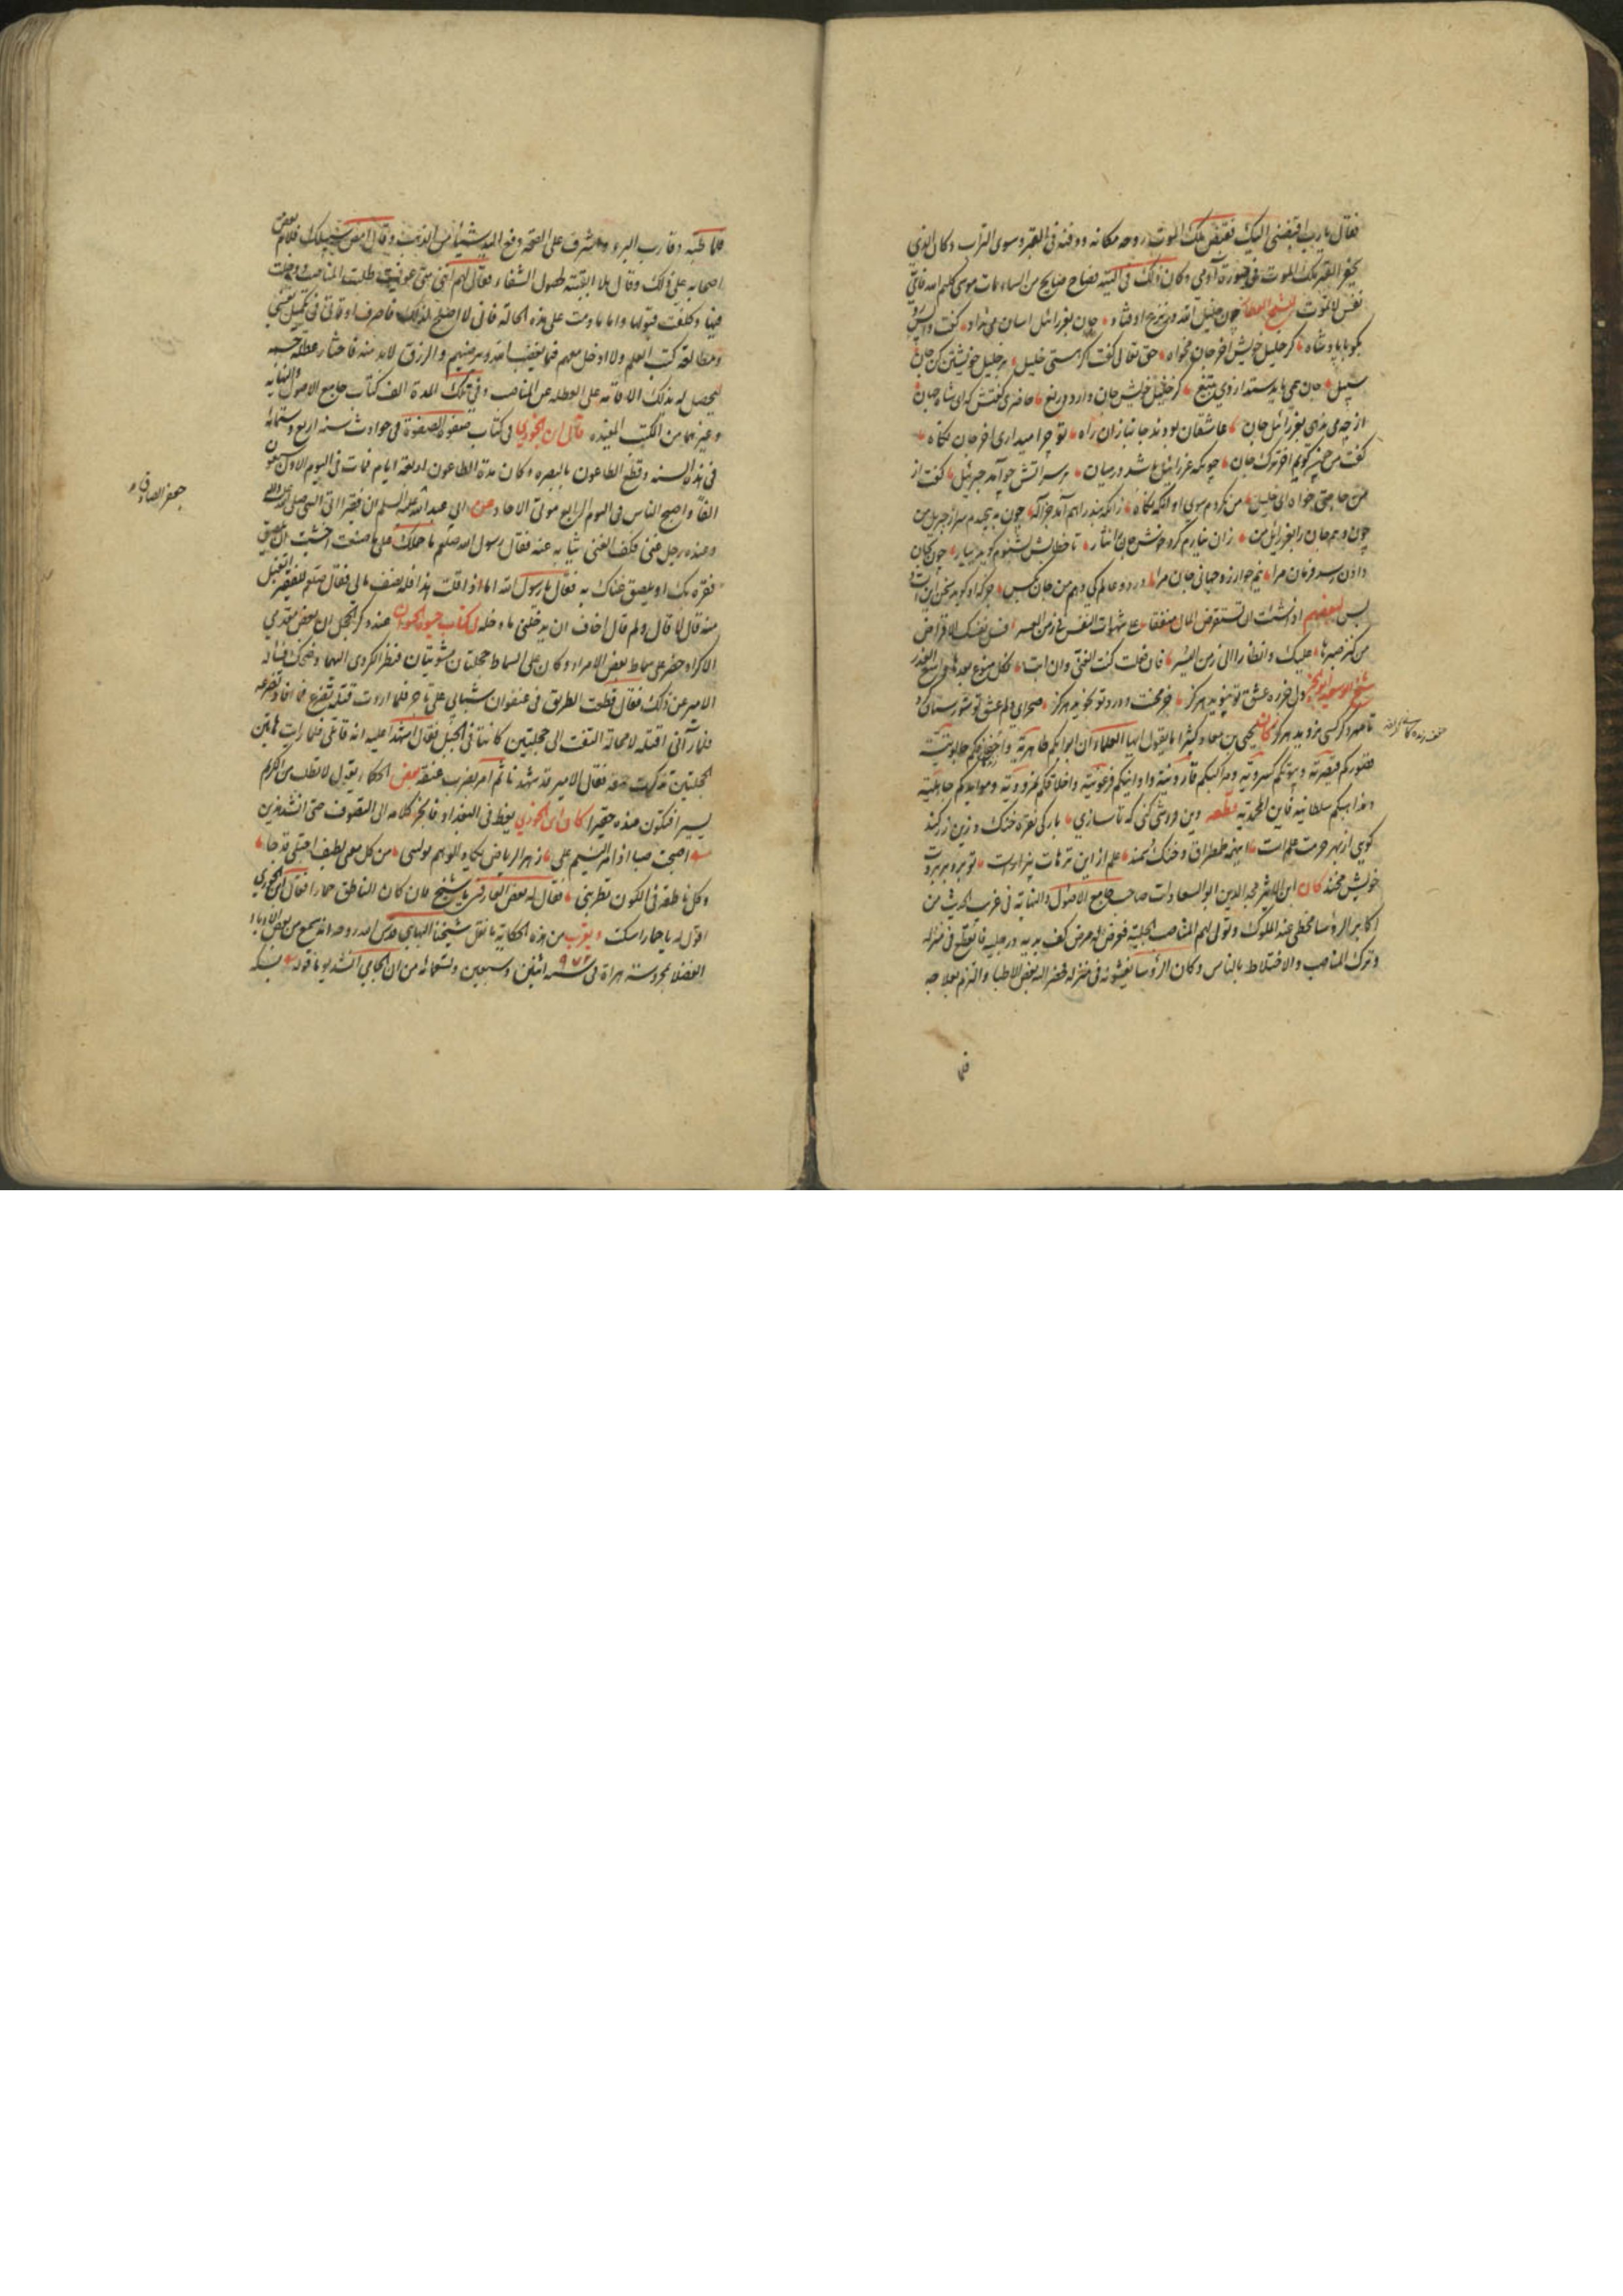 فقال يا رب اقبضنى اليك فقبض ملك الموت روحه مكانه ودفنه فى القبر وسوى التراب وكان الذى
يحفر القبر ملك الموت فى صورة آدمى وكان ذلك فى التيه فصاح صايح من السماء مات موسى كليم الله فاى
نفس لا تموت الشيخ العطار چون خليل الله در نزع اوفتاد جان بعزرائيل اسان مى نداد گفت واپس رو
بگو با پادشاه كز خليل خويش آخر جان مخواه حق تعالى گفت اگر هستى خليل بر خليل خويشتن كن جان
سبيل جان همى بايد ستد از وى بتيغ كز خليل خويش جان دارد دريغ حاضرى گفتش كه اى شاه جهان
از چه مى ندهى بعزرائيل جان عاشقان بودند جانبازان راه تو چرا ميدارى آخر جان نگاه
گفت من چون گويم آخر ترك جان چونكه عزرائيل باشد در ميان بر سر آتش چو آمد جبرئيل گفت از
من حاجتى خواه اى خليل من نكردم سوى او آنگه نگاه زانكه بند راهم آمد جز آله چون به پيچيدم سر از جبريل من
چون دهم جان را بعزرائيل من زان نيارم كرد خوش جان نثار تا خطابش بشنوم گويد بيار چون بجان
دادن رسد فرمان مرا نيم جو ارزد جهانى جان مرا در دو عالم كى دهم من جان بكس جز كه او گويد سخن اين است و
بس لبعضهم اذا شئت ان تستقرض المال منفقا على شهوات النفس فى زمن العسر فسل نفسك الاقراض
من كنز صبرها عليك وانظارا الى زمن اليسر فان فعلت كنت الغنى وان ابت فكل منوع بعدها واسع العذر
شيخ ابو سعيد ابو الخير دل جز ره عشق تو نپويد هرگز جز محنت و درد تو نجويد هرگز صحراى دلم عشق تو شورستان كرد
تا مهر دگر كسى نرويد هرگز كان يحيى بن معاذ كثيرا ما يقول ايها العلماء ان ابوابكم طاهرية واخفافكم جالوتية
فقصوركم قيصرية وبيوتكم كسروية ومراكبكم قارونية واوانيكم فرعونية واخلاقكم نمرودية وموائدكم جاهلية
ومذاهبكم سلطانية فاين المحمدية قطعه دين فروشى كنى كه تا سازى بارگى نقره خنگ و زين زركند
گويى از بهر حرمت علم است اينهمه طمطراق و خنگ سمند علم از اين ترهات بيزار است تو برو بر بروت
خويش مخند كان ابن الاثير مجد الدين ابو السعادات صاحب جامع الاصول والنهاية فى غريب الحديث من
اكابر الرؤسا محظى عند الملوك وتولى لهم المناصب الجليلة فعرض له مرض كف يديه ورجليه فانقطع فى منزله
وترك المناصب والاختلاط بالناس وكان الرؤسا يغشونه فى منزله فحضر اليه بعض الاطبا والتزم بعلاجه
فلما
فلما طببه وقارب البرء واشرف على الصحة دفع اليه شيئا من الذهب وقال امض لسبيلك فلامه بعض
اصحابه على ذلك وقال هلا ابقيته لحصول الشفاء فقال لهم اننى متى عوفيت طلبت المناصب ودخلت
فيها وكلفت قبولها واما ما دمت على هذه الحالة فانى لا اصلح لذلك فاصرف اوقاتى فى تكميل نفسى
ومطالعة كتب العلم ولا ادخل معهم فيما يغضب الله ويرضيهم والرزق لا بد منه فاختار عطلة جسمه
ليحصل له بذلك الاقامة على العطلة عن المناصب وفى تلك المدة الف كتاب جامع الاصول والنهاية
وغيرهما من الكتب المفيدة قال ابن الجوزى فى كتاب صفوة الصفوة فى حوادث سنه اربع وستمائة
فى هذه السنه وقع الطاعون بالبصرة وكان مدة الطاعون اربعة ايام فمات فى اليوم الاول سبعون
الفا واصبح الناس فى اليوم الرابع موتى الا احاد عن ابى عبد الله عليه السلم ان فقيرا اتى النبى صلى الله عليه وآله
وعنده رجل غنى فكف الغنى ثيابه عنه فقال رسول الله صلعم ما حملك على ما صنعت اخشيت ان يلصق
فقره بك او يلصق غناك به فقال يا رسول الله اما اذا قلت هذا فله نصف مالى فقال صلعم للفقير اتقبل
منه قال لا قال ولم قال اخاف ان يدخلنى ما دخله فى كتاب حيوة الحيوان عند ذكر الحجل ان بعض مقدمى
الاكراد حضر على سماط بعض الامراء وكان على السماط حجلتان مشويتان فنظر الكردى اليهما وضحك فسأله
الامير عن ذلك فقال قطعت الطريق فى عنفوان شبابى على تاجر فلما اردت قتله تضرع فما افاد تضرعه
فلما رآنى اقتله لا محالة التفت الى حجلتين كانتا فى الجبل فقال اشهدا عليه انه قاتلى فلما رايت هاتين
الحجلتين تذكرت حمقه فقال الامير قد شهدتا ثم امر بضرب عنقه بعض الحكماء يقول لا تطلب من الكريم
يسيرا فتكون عنده حقيرا كان ابن الجوزى يعظ فى البغداد فانجر كلامه الى التصوف حتى انشد هذين
اصبحت صبا اذا مر النسيم على زهر الرياض يكاد الوهم يولمنى من كل معنى لطيف اجتلى قدحا
وكل ناطقة فى الكون تطربنى فقال له بعض العارفين يا شيخ فان كان الناطق حمارا فقال ابن الجوزى
اقول له يا حمار اسكت ويقرب من هذه الحكاية ما نقل شيخنا البهائى قدس الله روحه انه سمع من بعض الادباء
الفضلا بمحروسة هراة فى سنه ٩٧٢ اثنين وسبعين وتسعمائه من ان الجامى انشد يوما قوله بسكه
جعفر الصادق